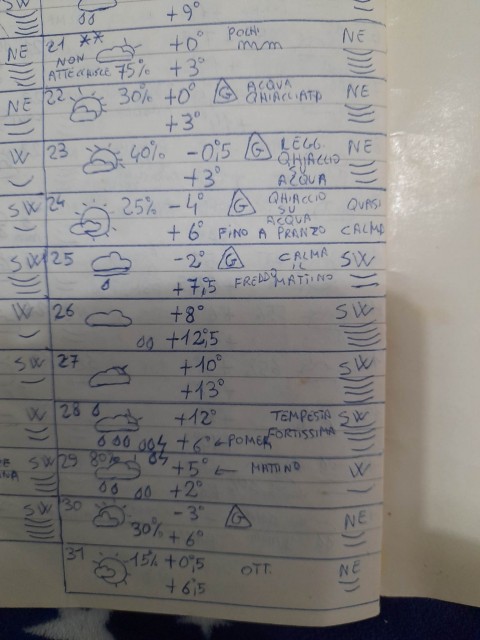 SW +9°
NE 21 ** +0° POCHI mm NE
NON ATTECCHISCE 75% +3°
NE 22 30% +0° G ACQUA GHIACCIATA NE
+3°
W 23 40% -0°,5 G LEGG. GHIACCIO S ACQUA NE
+3°
SW 24 25% -4° G GHIACCIO SU ACQUA QUASI
+6° FINO A PRANZO CALMA
SW 25 -2° G CALMA IL SW
+7°,5 FREDDO MATTINO
W 26 +8° SW
+12°,5
SW 27 +10° SW
+13°
W 28 +12° TEMPESTA SW
+6° ← POMER FORTISSIMA
SW 29 80% +5° ← MATTINO W
+2°
SW 30 -3° G NE
30% +6°
31 15% +0°,5 OTT. NE
+6°,5